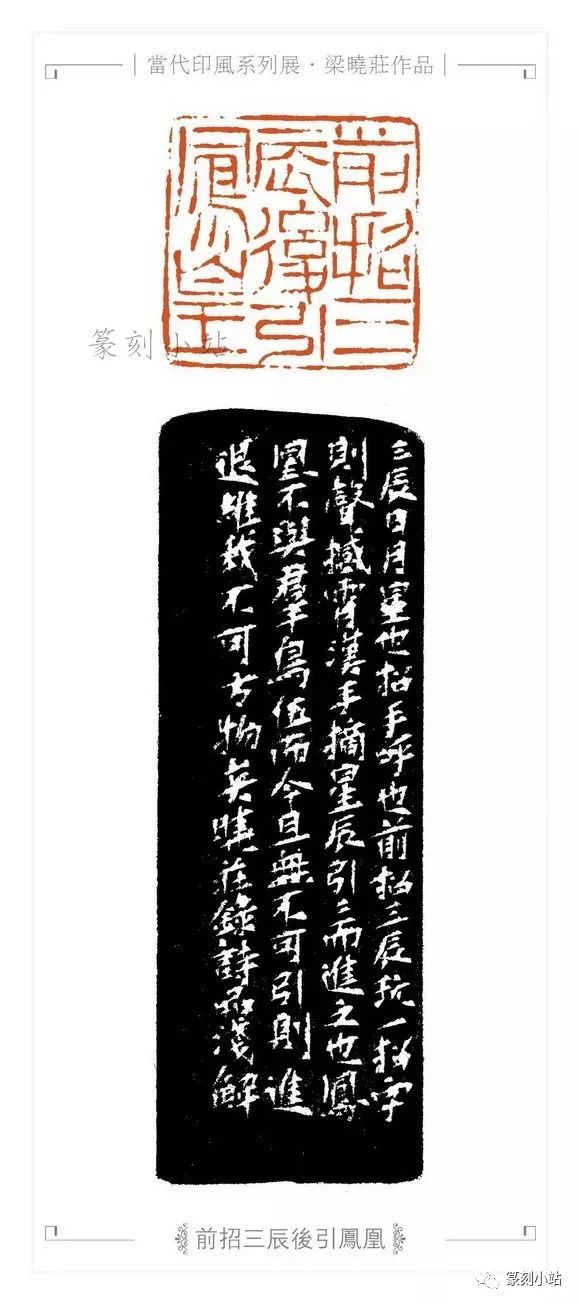 當代印風系列展·梁曉莊作品
前招三
辰後引
鳳皇
篆刻小站
三辰日月星也招手呼也前招三辰玩一招字
則聲撼霄漢手摘星辰引〻而進之也鳳
凰不與羣鳥伍而今且無不可引則進
退維我不可方物矣曉莊錄詩品淺解
前招三辰後引鳳凰
篆刻小站